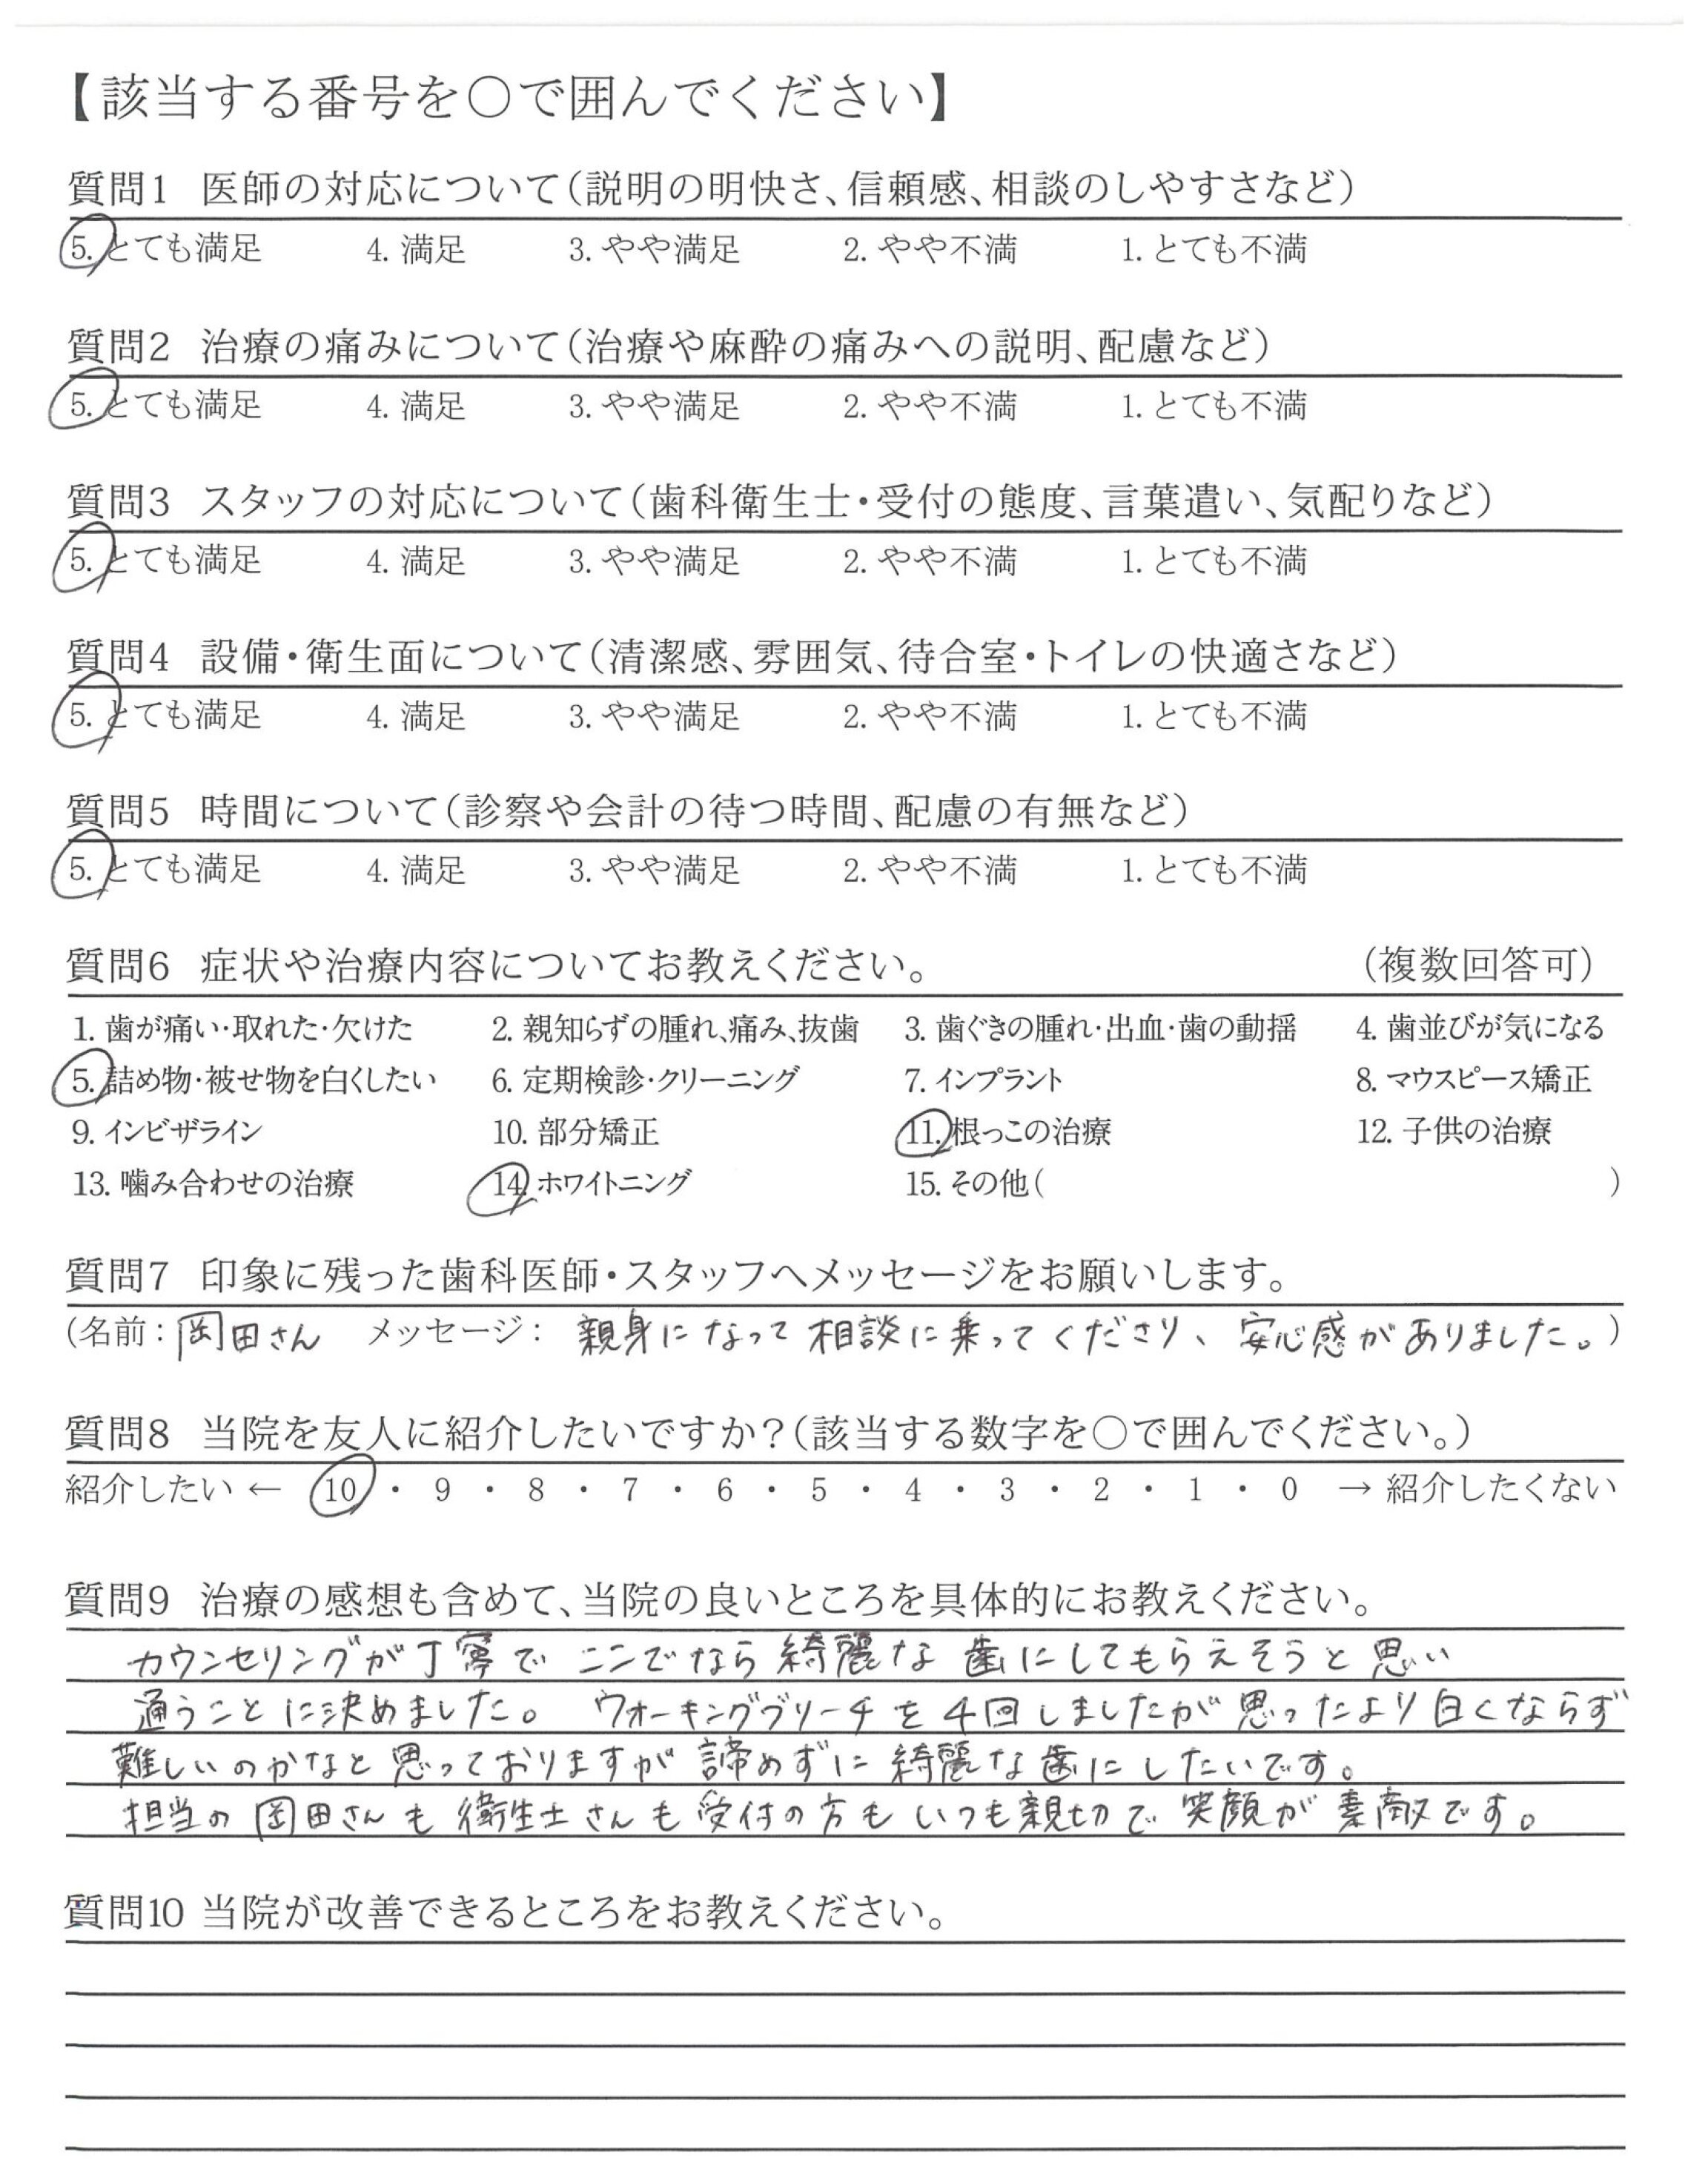 【該当する番号を○で囲んでください】
質問1 医師の対応について（説明の明快さ、信頼感、相談のしやすさなど）
5. とても満足 4. 満足 3. やや満足 2. やや不満 1. とても不満
質問2 治療の痛みについて（治療や麻酔の痛みへの説明、配慮など）
5. とても満足 4. 満足 3. やや満足 2. やや不満 1. とても不満
質問3 スタッフの対応について（歯科衛生士・受付の態度、言葉遣い、気配りなど）
5. とても満足 4. 満足 3. やや満足 2. やや不満 1. とても不満
質問4 設備・衛生面について（清潔感、雰囲気、待合室・トイレの快適さなど）
5. とても満足 4. 満足 3. やや満足 2. やや不満 1. とても不満
質問5 時間について（診察や会計の待つ時間、配慮の有無など）
5. とても満足 4. 満足 3. やや満足 2. やや不満 1. とても不満
質問6 症状や治療内容についてお教えください。 （複数回答可）
1. 歯が痛い・取れた・欠けた 2. 親知らずの腫れ、痛み、抜歯 3. 歯ぐきの腫れ・出血・歯の動揺 4. 歯並びが気になる
5. 詰め物・被せ物を白くしたい 6. 定期検診・クリーニング 7. インプラント 8. マウスピース矯正
9. インビザライン 10. 部分矯正 11. 根っこの治療 12. 子供の治療
13. 噛み合わせの治療 14. ホワイトニング 15. その他（ ）
質問7 印象に残った歯科医師・スタッフへメッセージをお願いします。
（名前：岡田さん メッセージ： 親身になって相談に乗ってくださり、安心感がありました。）
質問8 当院を友人に紹介したいですか？（該当する数字を○で囲んでください。）
紹介したい ← 10 ・ 9 ・ 8 ・ 7 ・ 6 ・ 5 ・ 4 ・ 3 ・ 2 ・ 1 ・ 0 → 紹介したくない
質問9 治療の感想も含めて、当院の良いところを具体的にお教えください。
カウンセリングが丁寧で ここでなら綺麗な歯にしてもらえそうと思い
通うことに決めました。 ウォーキングブリーチを4回しましたが思ったより白くならず
難しいのかなと思っておりますが諦めずに綺麗な歯にしたいです。
担当の岡田さんも衛生士さんも受付の方もいつも親切で笑顔が素敵です。
質問10 当院が改善できるところをお教えください。